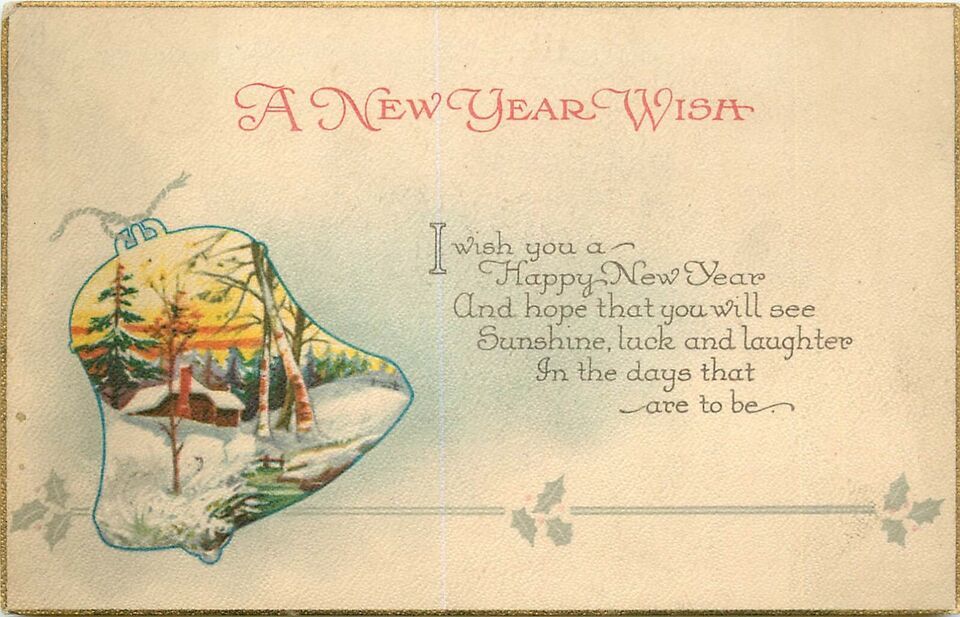 A New Year Wish
I wish you a
Happy New Year
And hope that you will see
Sunshine, luck and laughter
In the days that
are to be.